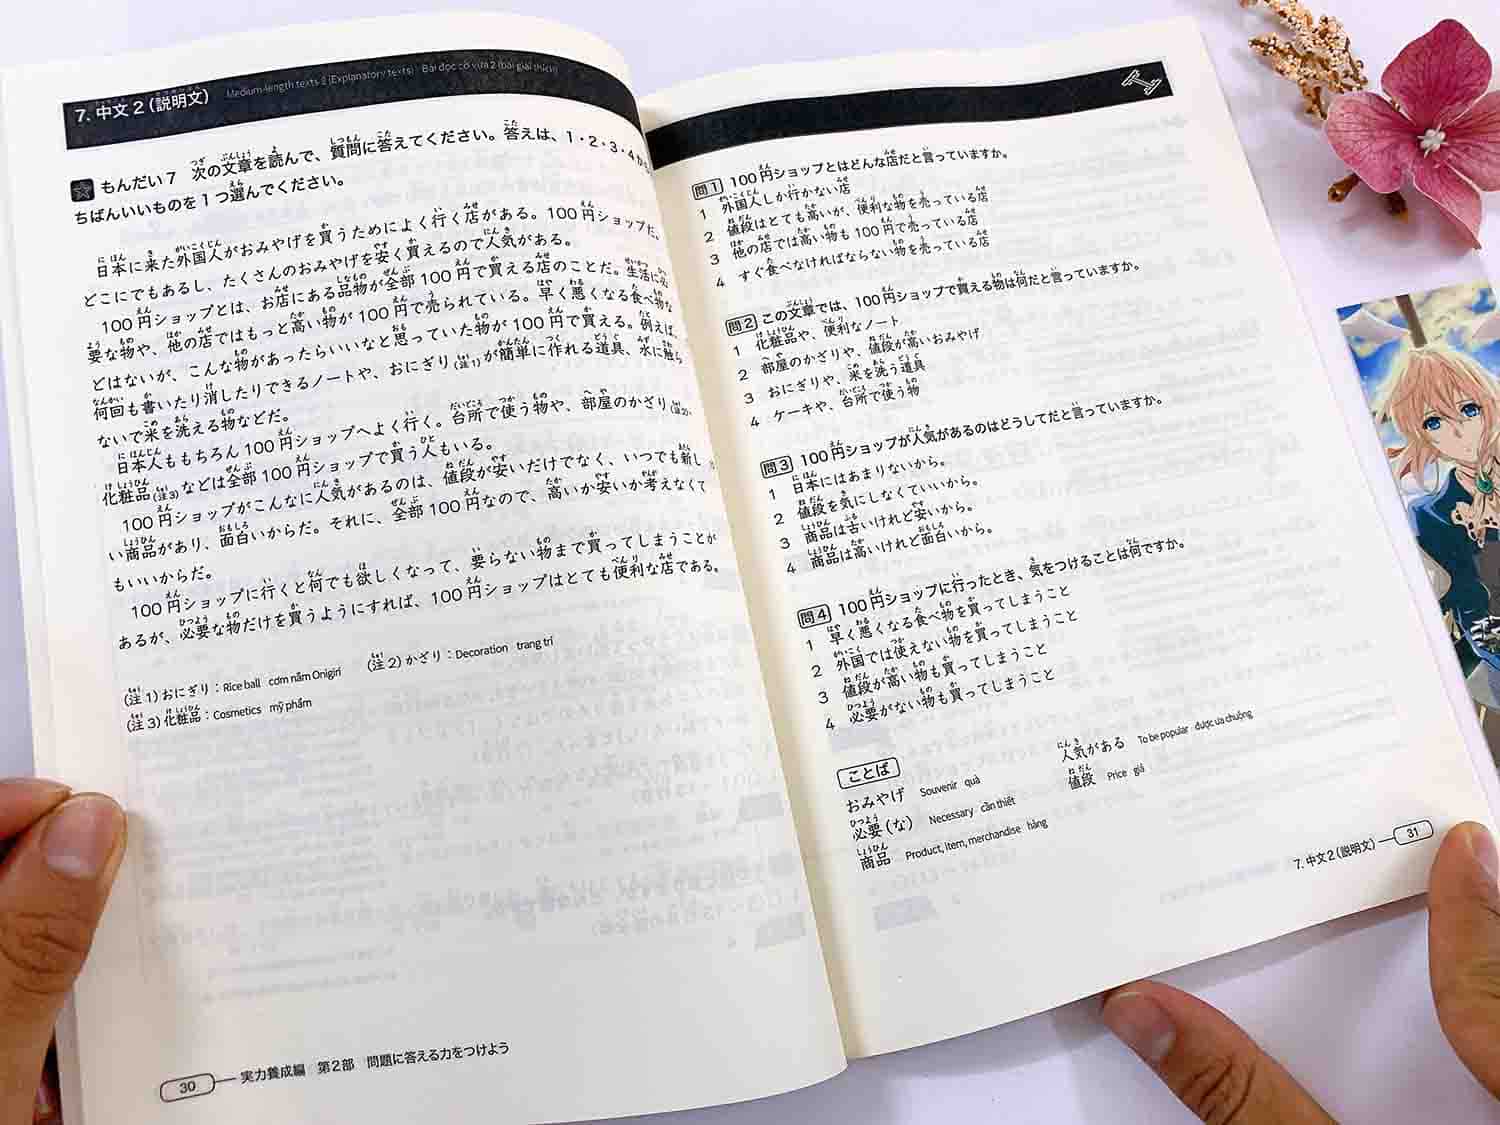 7. 中文2(説明文) Medium-length texts 2 (Explanatory texts) Bài đọc cỡ vừa 2 (bài giải thích)
もんだい7 次の文章を読んで、質問に答えてください。答えは、1・2・3・4から
ちばんいいものを1つ選んでください。
日本に来た外国人がおみやげを買うためによく行く店がある。100円ショップだ。
どこにでもあるし、たくさんのおみやげを安く買えるので人気がある。
100円ショップとは、お店にある品物が全部100円で買える店のことだ。生活に必
要な物や、他の店ではもっと高い物が100円で売られている。早く悪くなる食べ物な
どはないが、こんな物があったらいいなと思っていた物が100円で買える。例えば、
何回も書いたり消したりできるノートや、おにぎり(注1)が簡単に作れる道具、水に触ら
ないで米を洗える物などだ。
日本人ももちろん100円ショップへよく行く。台所で使う物や、部屋のかざり(注2)、
化粧品(注3)などは全部100円ショップで買う人もいる。
100円ショップがこんなに人気があるのは、値段が安いだけでなく、いつでも新し
い商品があり、面白いからだ。それに、全部100円なので、高いか安いか考えなくて
もいいからだ。
100円ショップに行くと何でも欲しくなって、要らない物まで買ってしまうことが
あるが、必要な物だけを買うようにすれば、100円ショップはとても便利な店である。
(注1)おにぎり:Rice ball cơm nắm Onigiri (注2)かざり:Decoration trang trí
(注3)化粧品:Cosmetics mỹ phẩm
30 実力養成編 第2部 問題に答える力をつけよう
問1 100円ショップとはどんな店だと言っていますか。
1 外国人しか行かない店
2 値段はとても高いが、便利な物を売っている店
3 他の店では高い物も100円で売っている店
4 すぐ食べなければならない物を売っている店
問2 この文章では、100円ショップで買える物は何だと言っていますか。
1 化粧品や、便利なノート
2 部屋のかざりや、値段が高いおみやげ
3 おにぎりや、米を洗う道具
4 ケーキや、台所で使う物
問3 100円ショップが人気があるのはどうしてだと言っていますか。
1 日本にはあまりないから。
2 値段を気にしなくていいから。
3 商品は古いけれど安いから。
4 商品は高いけれど面白いから。
問4 100円ショップに行ったとき、気をつけることは何ですか。
1 早く悪くなる食べ物を買ってしまうこと
2 外国では使えない物を買ってしまうこと
3 値段が高い物も買ってしまうこと
4 必要がない物も買ってしまうこと
ことば
おみやげ Souvenir quà 人気がある To be popular được ưa chuộng
必要(な) Necessary cần thiết 値段 Price giá
商品 Product, item, merchandise hàng
7. 中文2(説明文) 31